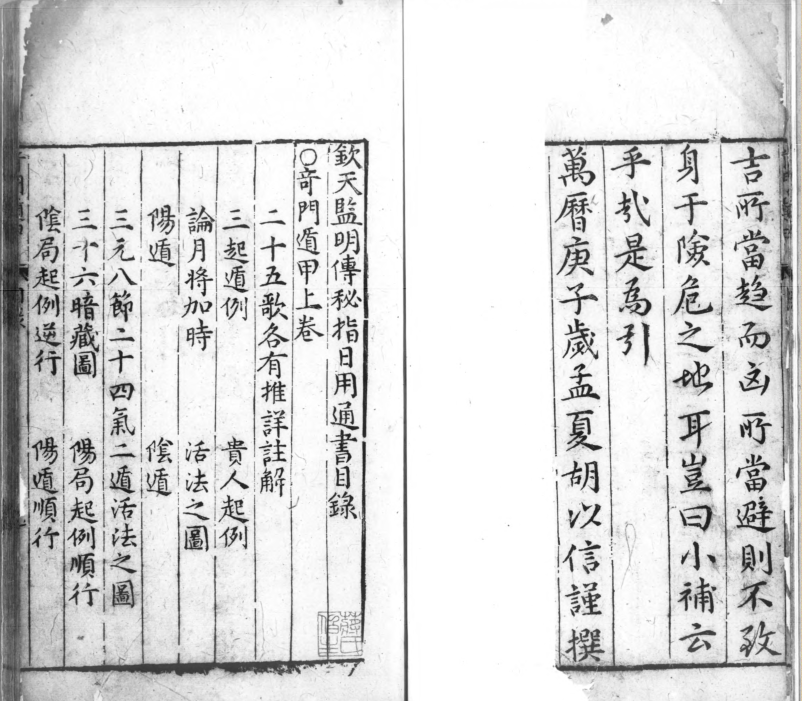 吉所當趋而凶所當避則不致
身于險危之地耳豈曰小補云
乎哉是爲引
萬曆庚子歲孟夏胡以信謹撰
欽天監明傳秘指日用通書目錄
○奇門遁甲上卷
二十五歌各有推詳註解
三起遁例 貴人起例
論月將加時 活法之圖
陽遁 陰遁
三元八節二十四氣二遁活法之圖
三十六暗藏圖 陽局起例順行
陰局起例逆行 陽遁順行